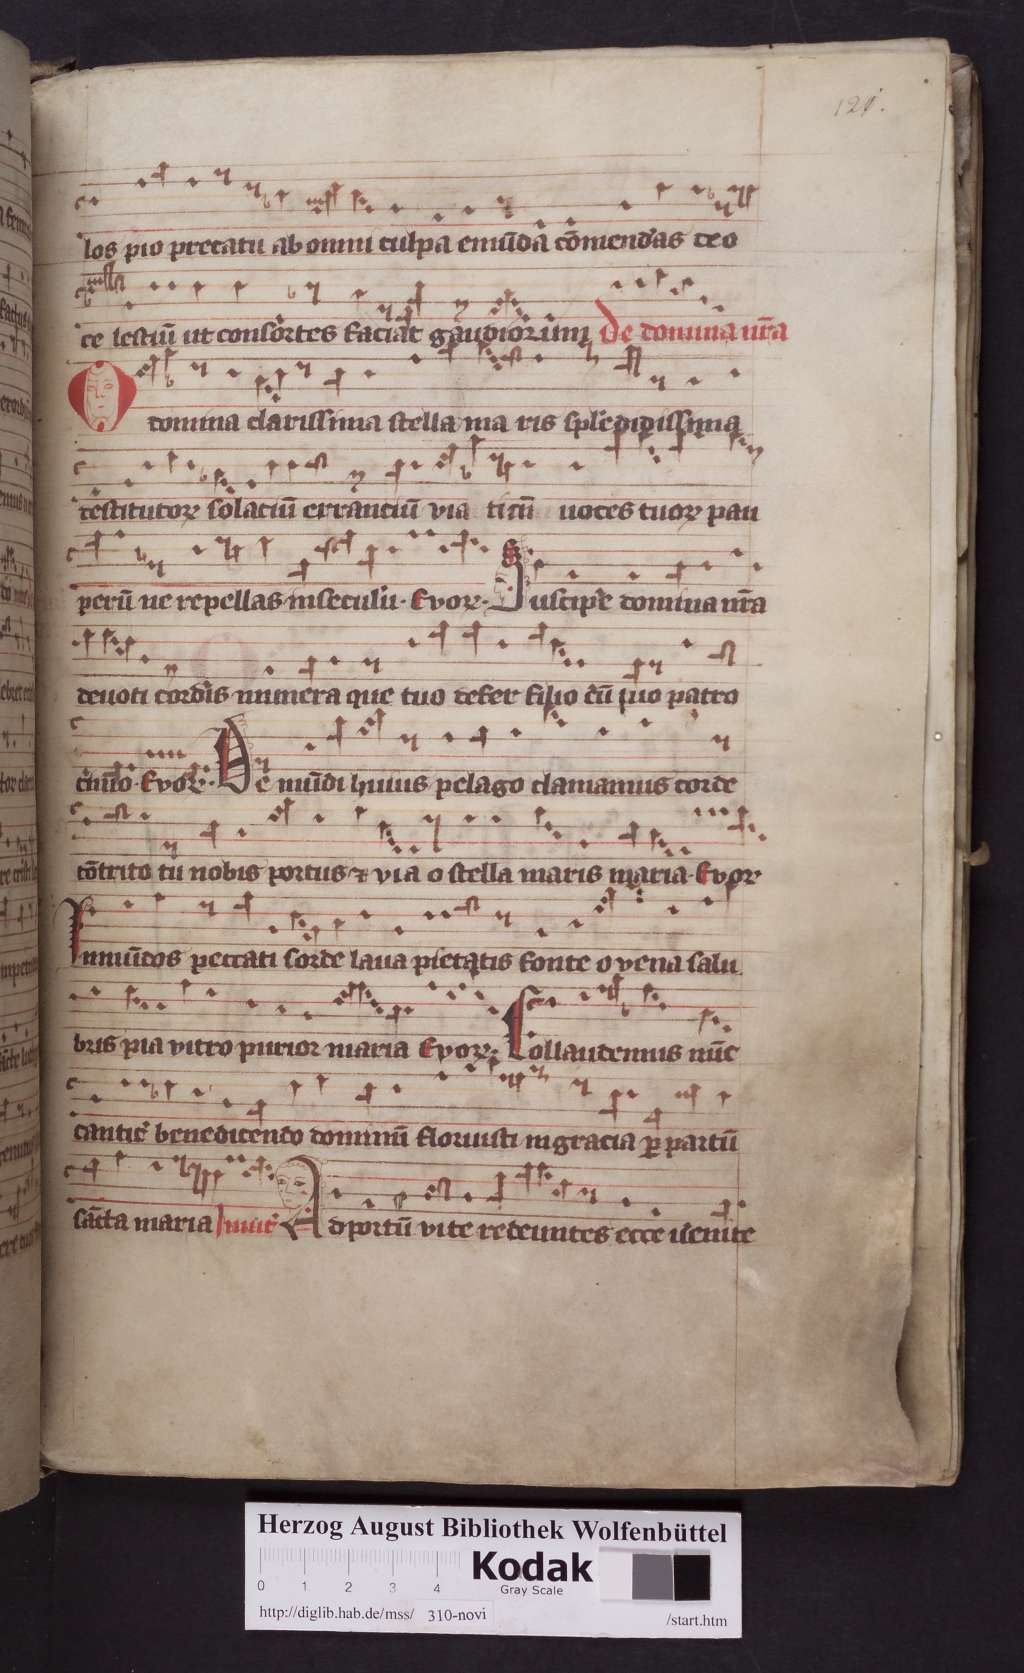 121.
los pio precatu ab omni culpa emūdā cōmendās deo
ce lestiū ut consortes faciat gaudiorum De domina nr̄a
O domina clarissima stella ma ris splēdidissima
restitutorꝝ solaciū erranciū via ticū uoces tuorꝝ pau
perū ne repellas in seculū. Evorꝝ. Suscipe domina nr̄a
deuoti cordis munera que tuo defer filio cū pio patro
cinio. Evorꝝ. De mūdi huius pelago clamamus corde
cōtrito tu nobis portus ⁊ via o stella maris maria. Evorꝝ
Inmūdos peccati sorde laua pietatis fonte o vena salu
bris pia vitro purior maria Evorꝝ. Collaudemus nūc
cantic̉ benedicendo dominū floruisti in gracia ꝑ partū
sācta maria Inuit̉ Ad portū vite redeuntes ecce uenite
Herzog August Bibliothek Wolfenbüttel
Kodak
Gray Scale
0 1 2 3 4
http://diglib.hab.de/mss/ 310-novi /start.htm